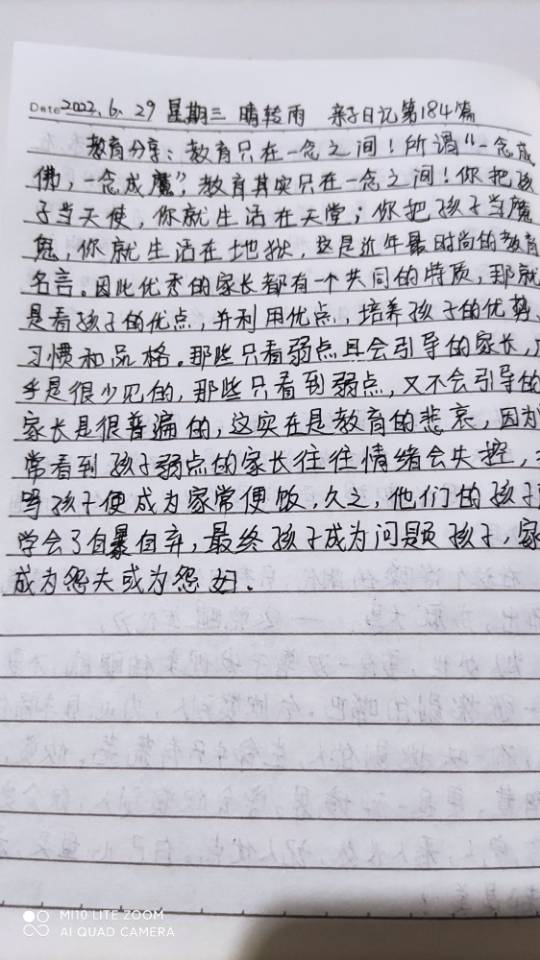 Date 2022.6.29 星期三 晴转雨 亲子日记第184篇
教育分享：教育只在一念之间！所谓"一念成
佛，一念成魔"，教育其实只在一念之间！你把孩
子当天使，你就生活在天堂；你把孩子当魔
鬼，你就生活在地狱，这是近年最时尚的教育
名言。因此优秀的家长都有一个共同的特质，那就
是看孩子的优点，并利用优点，培养孩子的优势、
习惯和品格。那些只看弱点且会引导的家长，
乎是很少见的，那些只看到弱点，又不会引导的
家长是很普遍的，这实在是教育的悲哀，因为
常看到孩子弱点的家长往往情绪会失控，
骂孩子便成为家常便饭，久之，他们的孩子
学会了自暴自弃，最终孩子成为问题孩子，家
成为怨夫或为怨妇。
MI 10 LITE ZOOM
AI QUAD CAMERA